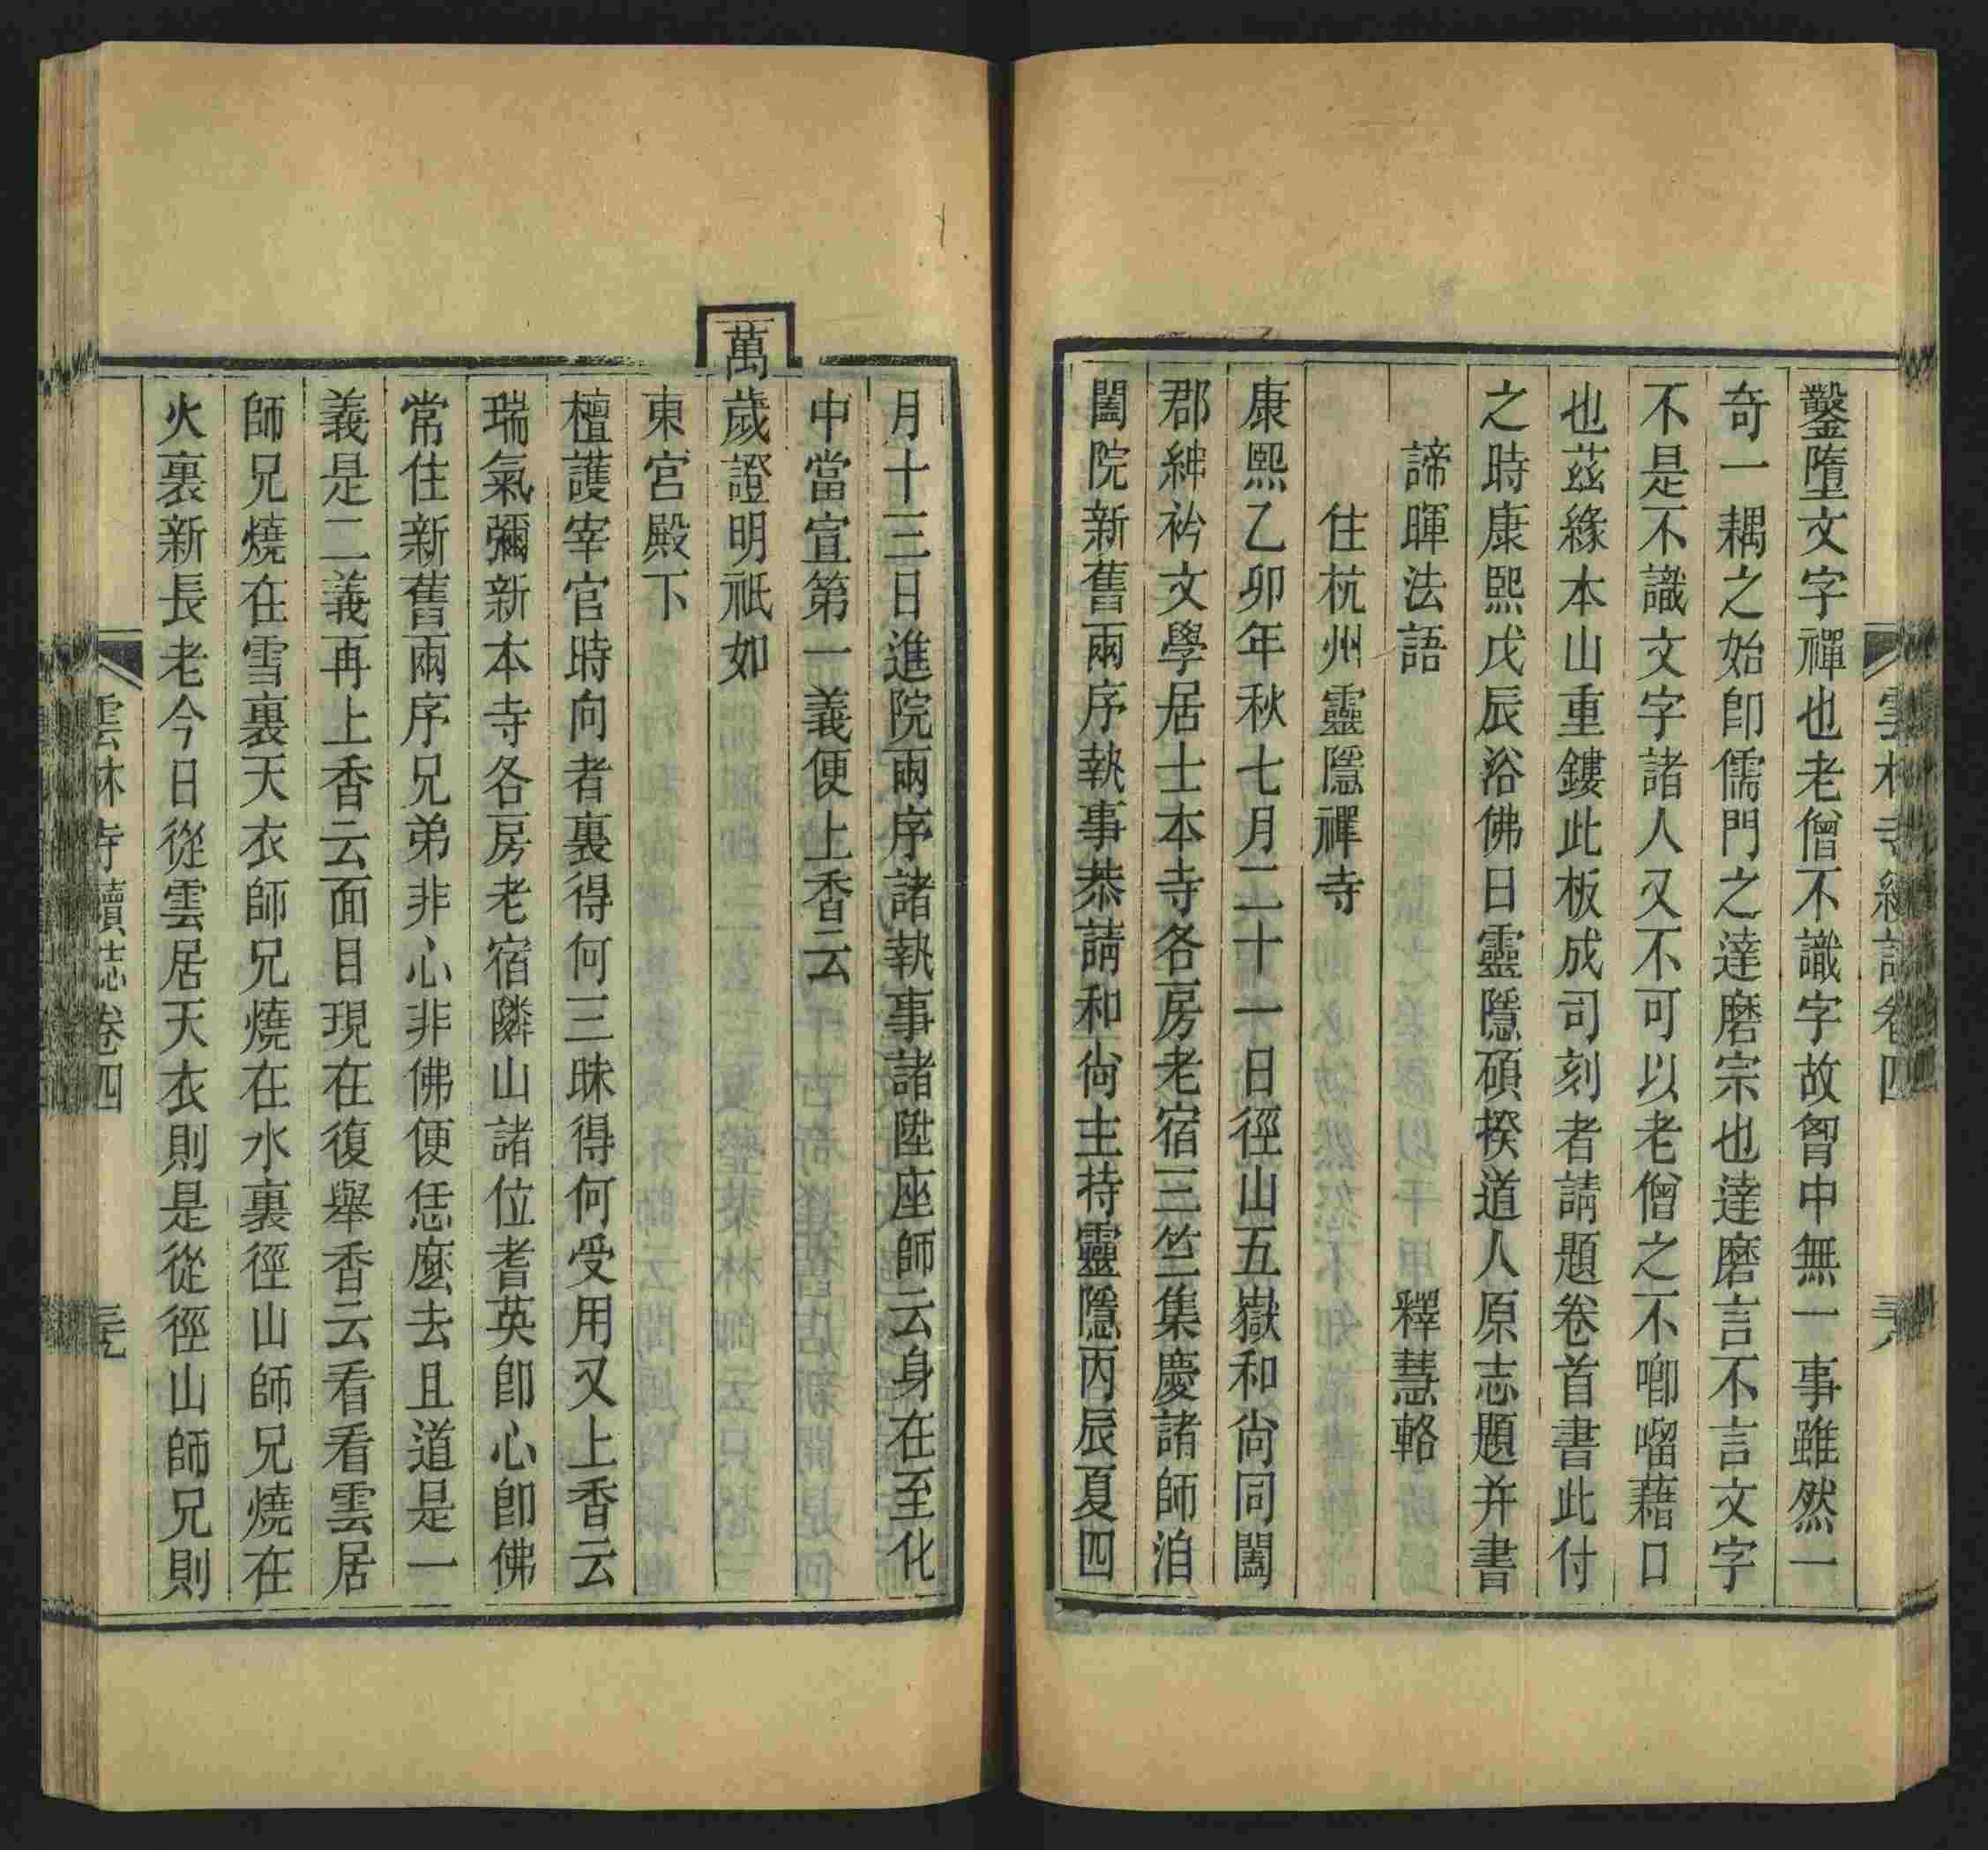 雲林寺續誌卷四 三八
鑿墮文字禪也老僧不識字故胷中無一事雖然一
奇一耦之始卽儒門之達磨宗也達磨言不言文字
不是不識文字諸人又不可以老僧之不唧㗲藉口
也茲緣本山重鏤此板成司刻者請題卷首書此付
之時康熙戊辰浴佛日靈隱碩揆道人原志題并書
諦暉法語 釋慧輅
住杭州靈隱禪寺
康熙乙卯年秋七月二十一日徑山五嶽和尙同闔
郡紳衿文學居士本寺各房老宿三竺集慶諸師洎
闔院新舊兩序執事恭請和尙主持靈隱丙辰夏四
月十三日進院兩序諸執事諸陞座師云身在至化
中當宣第一義便上香云
萬歲證明祇如
東宮殿下
檀護宰官時向者裏得何三昧得何受用又上香云
瑞氣彌新本寺各房老宿隣山諸位耆英卽心卽佛
常住新舊兩序兄弟非心非佛便恁麽去且道是一
義是二義再上香云面目現在復舉香云看看雲居
師兄燒在雪裏天衣師兄燒在水裏徑山師兄燒在
火裏新長老今日從雲居天衣則是從徑山師兄則
雲林寺續誌卷四 三九